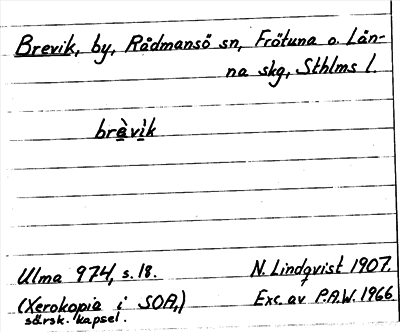 Brevik, by, Rådmansö sn, Frötuna o. Län-
na skg, Sthlms l.
brèvik
Ulma 974, s. 18. N. Lindqvist 1907.
(Xerokopia i SOA,) Exc. av P.A.W. 1966
särsk. kapsel.